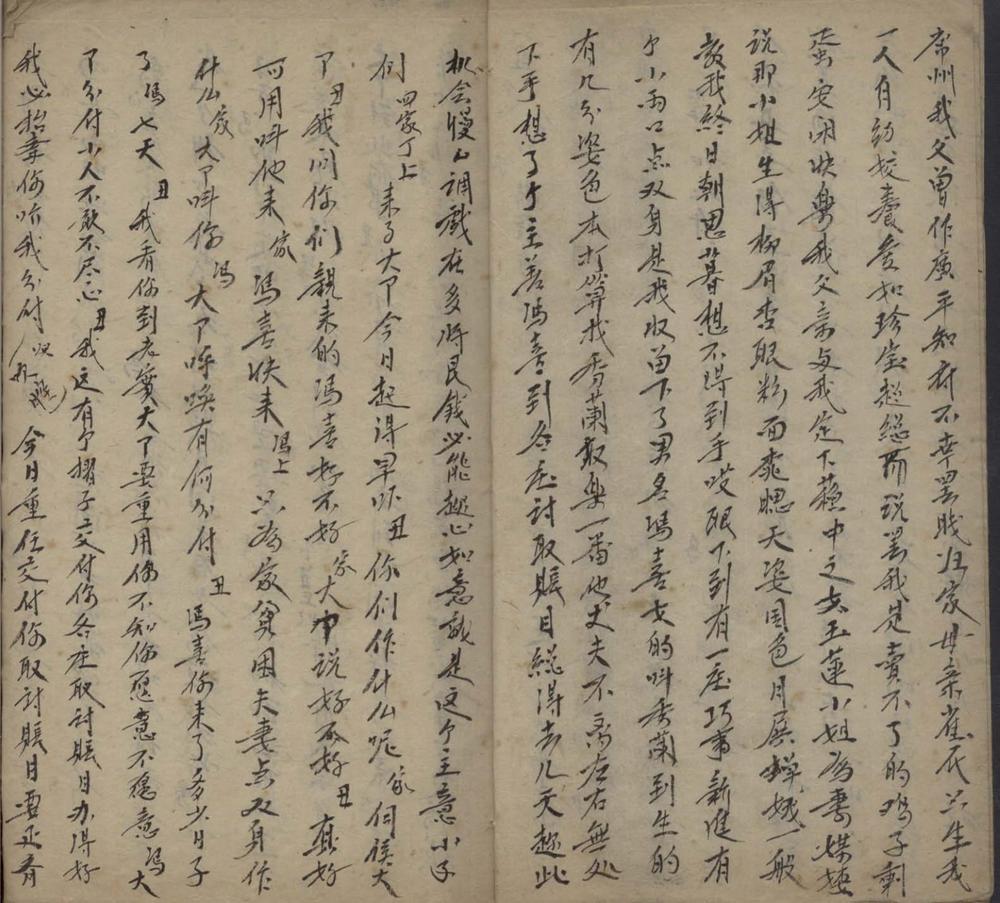 常州我父曾作廣平知府不幸罢职归家母亲崔氏只生我
一人自幼姣養愛如珍宝趙總爾说罢我是賣不了的鸡子剩
蛋安闲快樂我父亲与我定下蘇中之女玉莲小姐為妻媒婆
说那小姐生得柳眉杏眼粉面桃腮天姿国色月殿嫦娥一般
敎我終日朝思暮想不得到手哎眼下到有一庄巧事新進有
个小两口点双身是我收留下了男名馮喜女的叫秀蘭到生的
有几分姿色本打算找秀蘭取樂一番他丈夫不离左右無处
下手想了个主善馮喜到各庄討取賬目總得去几天趁此
机会慢々调戲在多將艮钱必能趁心如意就是这个主意小子
们 四家丁上 来了大爷今日起得早吓 丑 你们作什么呢 家 伺候大
爷 丑 我问你们新来的馮喜好不好 家 大爷说好不好 丑 真好
可用叫他来 家 馮喜快来 馮上 只為家貧困夫妻点双身作
什么 家 大爷叫你 馮 大爷呼喚有何分付 丑 馮喜你来了多少日子
了 馮 七天 丑 我看你到老實大爷要重用你不知你愿意不愿意 馮 大
爷分付小人不敢不尽心 丑 我这有个摺子交付你各庄取討賬目办得好
我必抬舉你听我分付 今日重任交付你取討賬目要正看